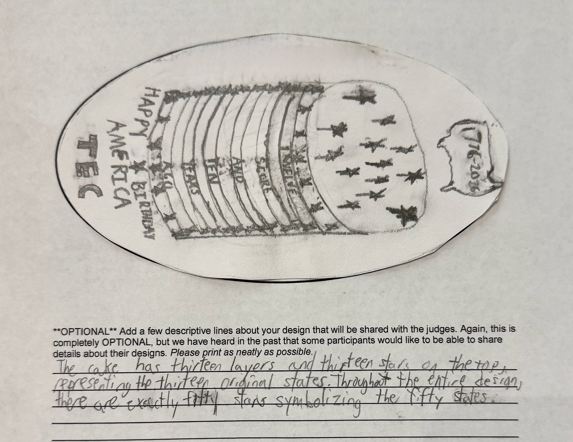 1776-2026
TWELVE
SCORE
AND
TEN
YEARS
HAPPY BIRTHDAY
AMERICA
TEC
**OPTIONAL** Add a few descriptive lines about your design that will be shared with the judges. Again, this is
completely OPTIONAL, but we have heard in the past that some participants would like to be able to share
details about their designs. Please print as neatly as possible.
The cake has thirteen layers and thirteen stars on the top,
representing the thirteen original states. Throughout the entire design,
there are exactly fifty stars symbolizing the fifty states.